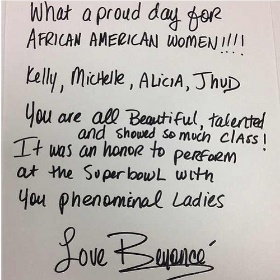 What a proud day for
AFRICAN AMERICAN WOMEN!!!!
Kelly, Michelle, ALICIA, JHUD
You are all Beautiful, talented
and showed so much class!
It was an honor to perform
at the Superbowl with
you phenominal Ladies
Love Beyoncé